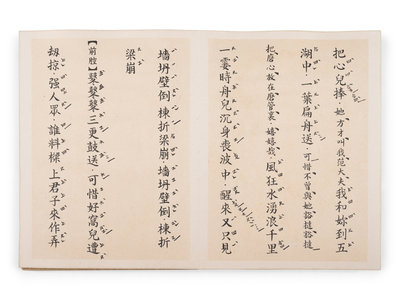 把心兒捧·她方才叫我范大夫我和妳到五
湖中·一葉扁舟送·可惜不曾與她谿撻
把屠心放在唐管裏·嬉嬉哉·風狂水湧浪千里
一霎時舟兒沉身喪波中·醒來又只見
墻坍壁倒棟折梁崩·墻坍壁倒·棟折
梁崩
【前腔】鼕鼕鼕三更鼓送·可惜好窩兒遭
劫掠·强人眾·誰料樑上君子來作弄